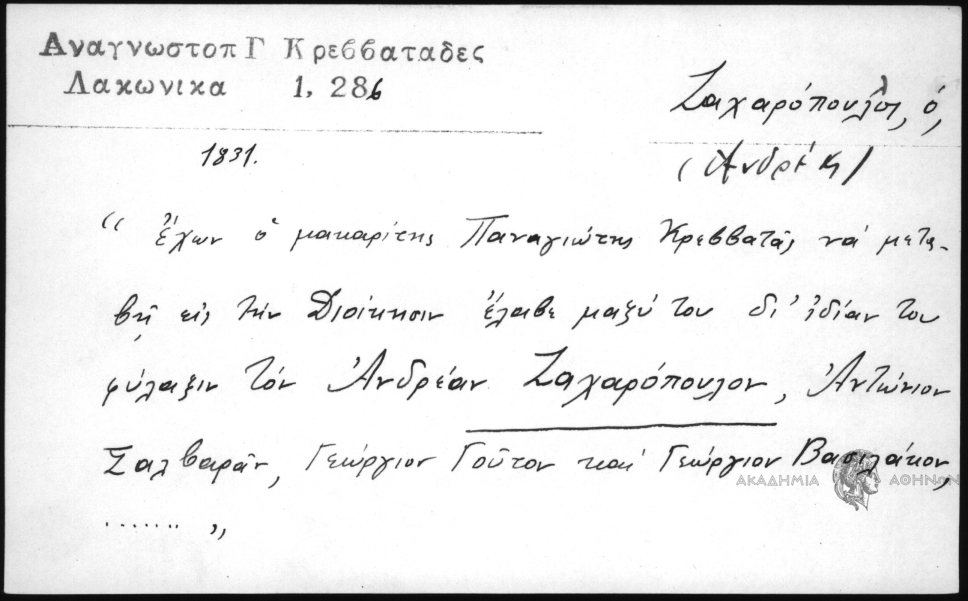 Αναγνωστοπ Γ Κρεββαταδες
Λακωνικα 1, 286
Ζαχαρόπουλος, ὁ,
(Ἀνδρέας)
1831.
“ ἔχων ὁ μακαρίτης Παναγιώτης Κρεββατᾶς νά μετα-
βῆ εἰς τήν Διοίκησιν ἔλαβε μαζύ του δι' ἰδίαν του
φύλαξιν τόν Ἀνδρέαν Ζαχαρόπουλον, Ἀντώνιον
Σαλβαρᾶν, Γεώργιον Γοῦτον καί Γεώργιον Βασιλάκον,
........ „
ΑΚΑΔΗΜΙΑ ΑΘΗΝΩΝ